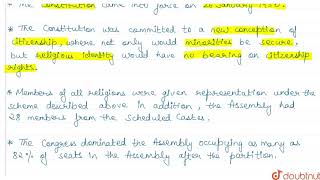 * The Constitution came into force on 26 January 1950.
* The Constitution was committed to a new conception of
citizenship, where not only would minorities be secure,
but religious identity would have no bearing on citizenship
rights.
* Members of all religions were given representation under the
scheme described above in addition, the Assembly had
28 members from the Scheduled Castes.
* The Congress dominated the Assembly occupying as many as
82% of seats in the Assembly after the partition.
doubtnut